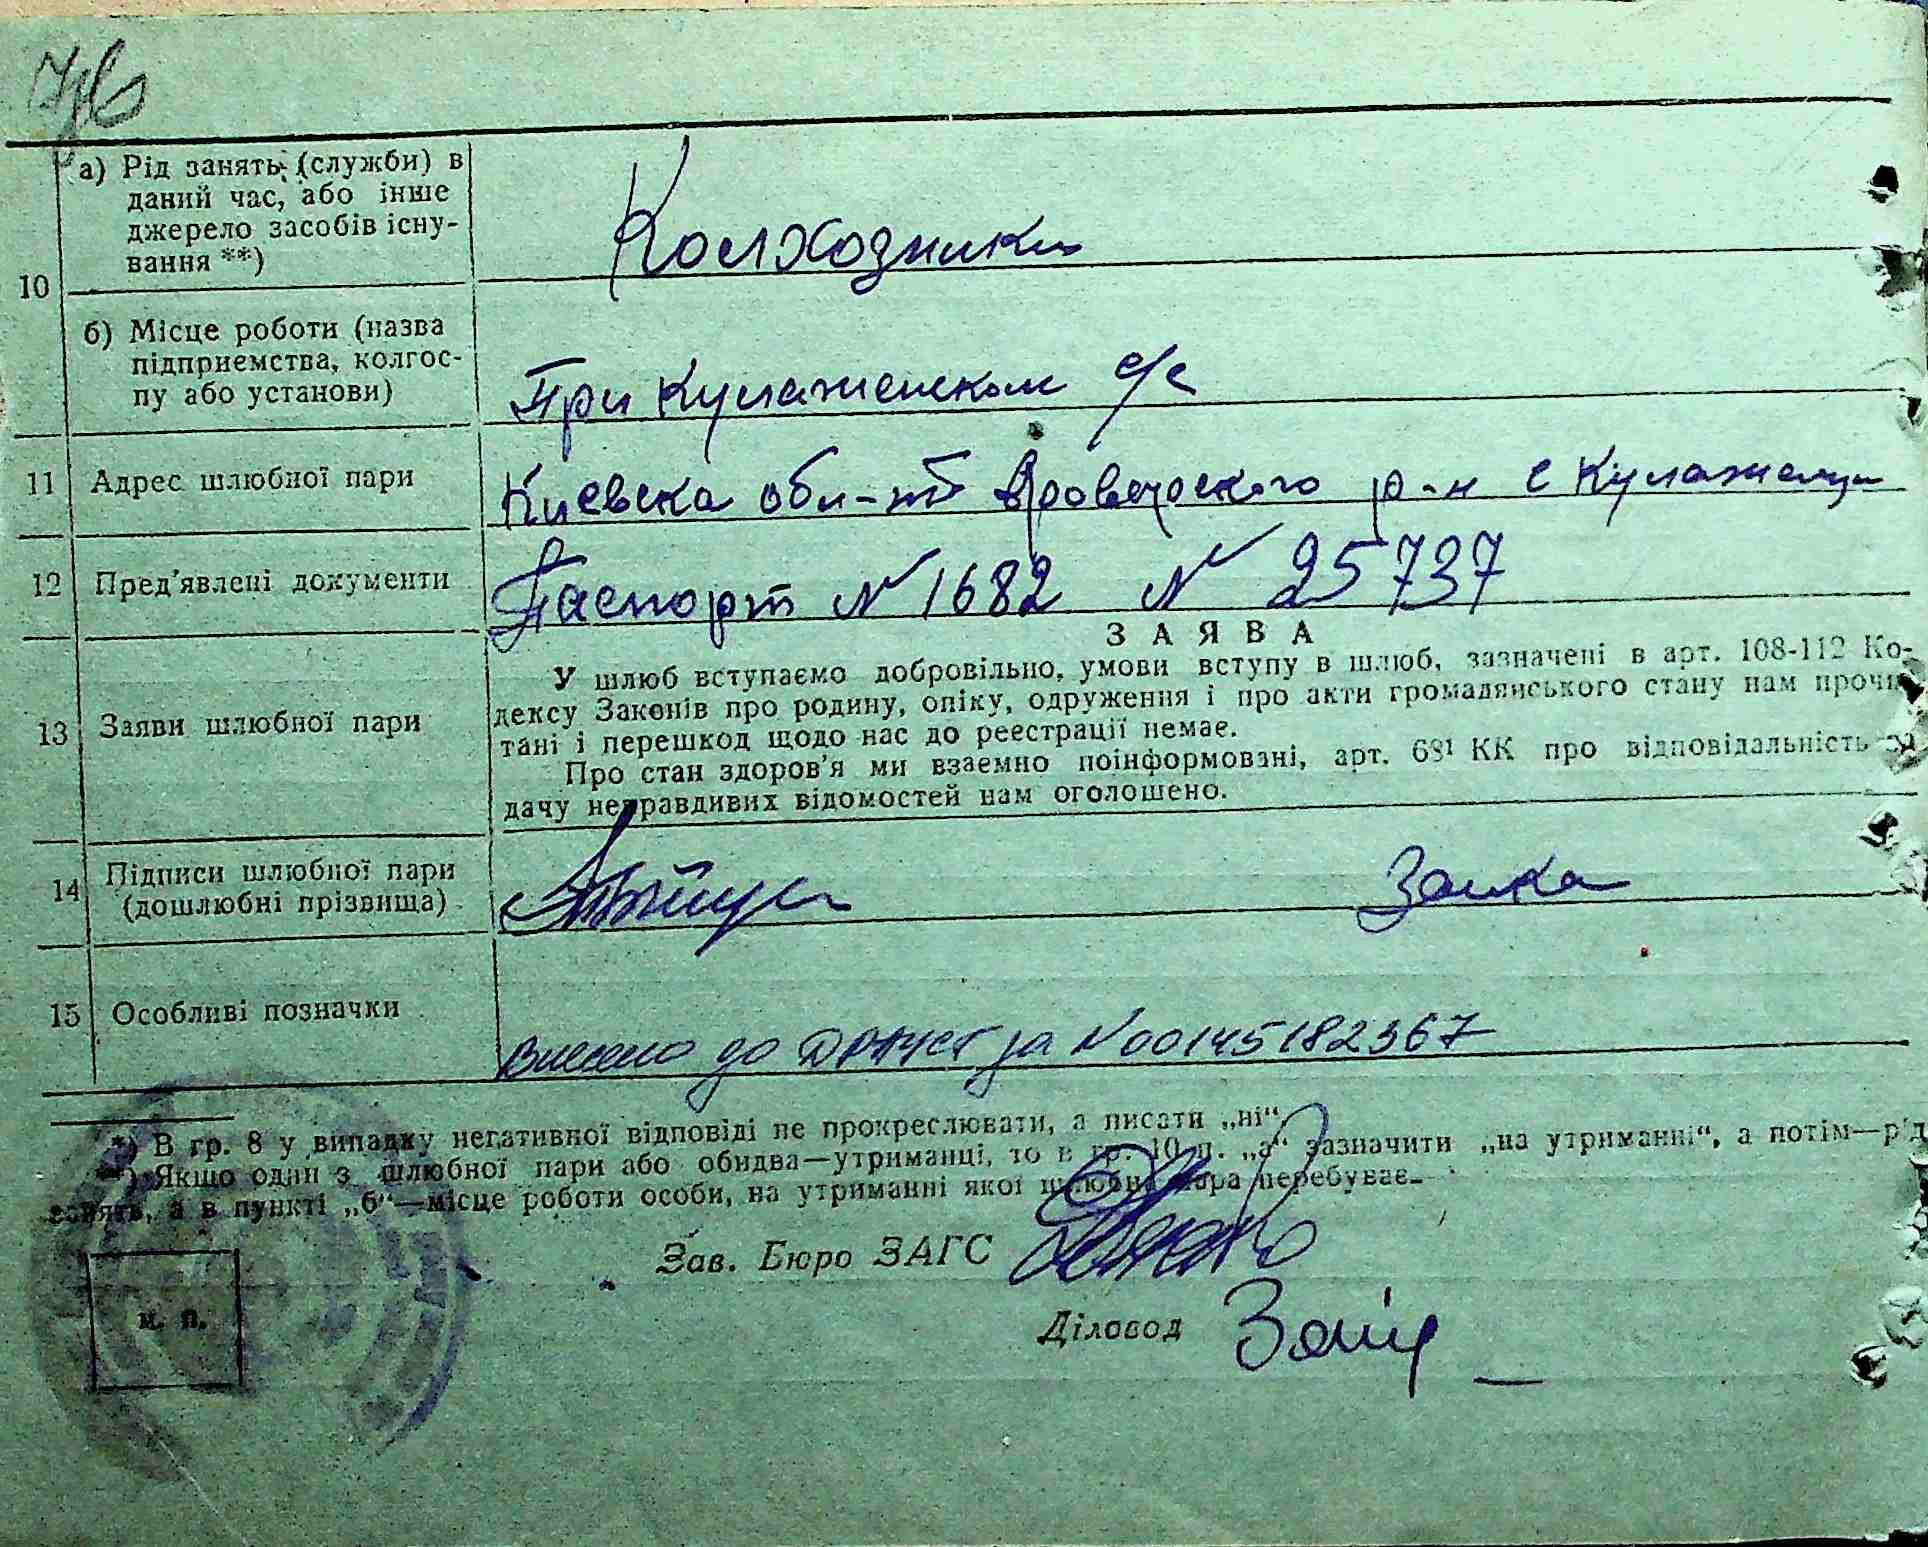 10
а) Рід занять (служби) в
даний час, або інше
джерело засобів існу-
вання **)
Колхозники
б) Місце роботи (назва
підприємства, колгос-
пу або установи)
При Кулаженском с/с
11 Адрес шлюбної пари
Киевска обл-ть Броварского р-н с Кулаженцы
12 Пред'явлені документи
Паспорт № 1682 № 25737
ЗАЯВА
13 Заяви шлюбної пари
У шлюб вступаємо добровільно, умови вступу в шлюб, зазначені в арт. 108-112 Ко-
дексу Законів про родину, опіку, одруження і про акти громадянського стану нам прочи-
тані і перешкод щодо нас до реестрації немає.
Про стан здоров'я ми взаемно поінформовані, арт. 68¹ КК про відповідальність за
дачу неправдивих відомостей нам оголошено.
14 Підписи шлюбної пари
(дошлюбні прізвища)
Заика
15 Особливі позначки
Внесено до ДРАЦСГ за №00145182367
*) В гр. 8 у випадку негативної відповіді не прокреслювати, а писати „ні“,
**) Якщо один з шлюбної пари або обидва—утриманці, то в гр. 10 п. „а“ зазначити „на утриманні“, а потім—рід
занять, а в пункті „б“—місце роботи особи, на утриманні якої шлюбна пара перебуває.
Зав. Бюро ЗАГС
Діловод
м. п.